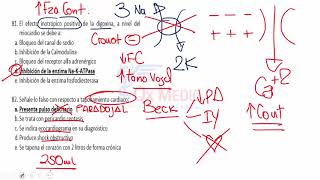 ↑ Fza Cont.
81. El efecto inotrópico positivo de la digoxina, a nivel del
miocardio se debe a:
a. Bloqueo del canal de sodio
b. Inhibición de la Calmodulina
c. Bloqueo del receptor alfa adrenérgico
d. Inhibición de la enzima Na-K-ATPasa
e. Inhibición de la enzima fosfodiesterasa
82. Señale lo falso con respecto a taponamiento cardiaco:
a. Presenta pulso
b. Se trata con pericardio
c. Se indica ecocardiograma en su diagnóstico
d. Produce shock obstructivo
e. Se tapona el corazón con 2 litros de forma crónica
250ml
PARADOJAL
3 Na
Cronot ⊖
↓FC
↑ Tono Vagal
2K
+ + +
Ca+2
↑Cont
Beck
↓PA
IY